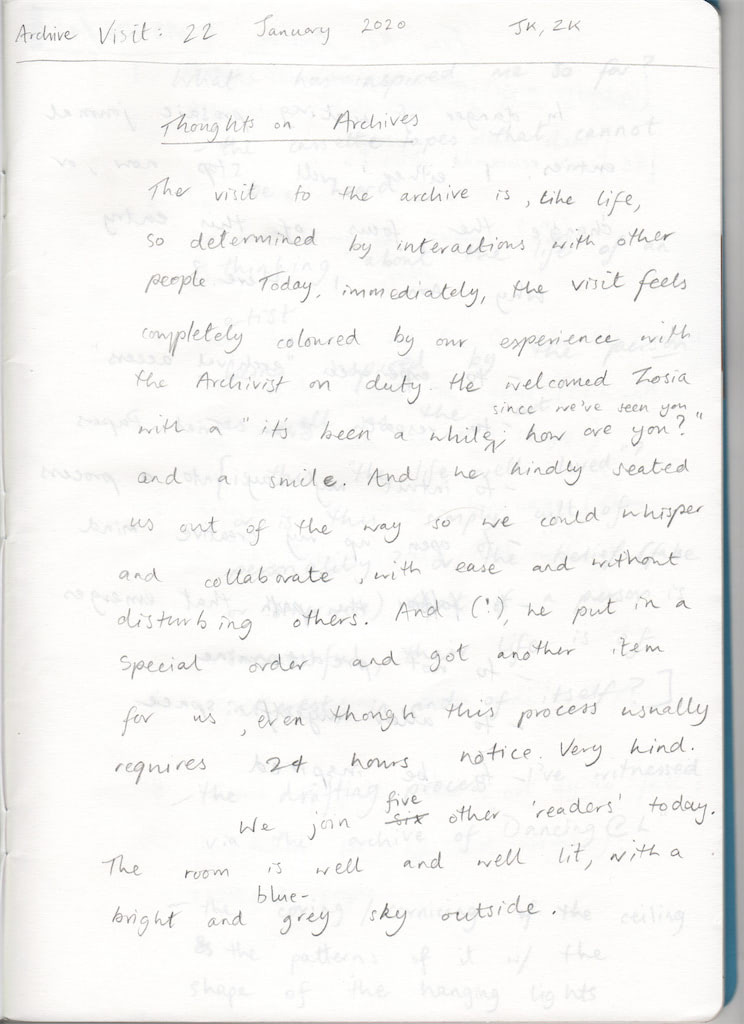 Archive Visit: 22 January 2020 JK, ZK
Thoughts on Archives
The visit to the archive is, like life,
so determined by interactions with other
people. Today, immediately, the visit feels
completely coloured by our experience with
the Archivist on duty. He welcomed Zosia
since we've seen you
with a "it's been a while, how are you?"
and a smile. And he kindly seated
us out of the way so we could whisper
and collaborate, with ease and without
disturbing others. And (!), he put in a
special order and got another item
for us, even though this process usually
requires 24 hours notice. Very kind.
five
We join six other 'readers' today.
The room is well and well lit, with a
blue-
bright and grey sky outside.